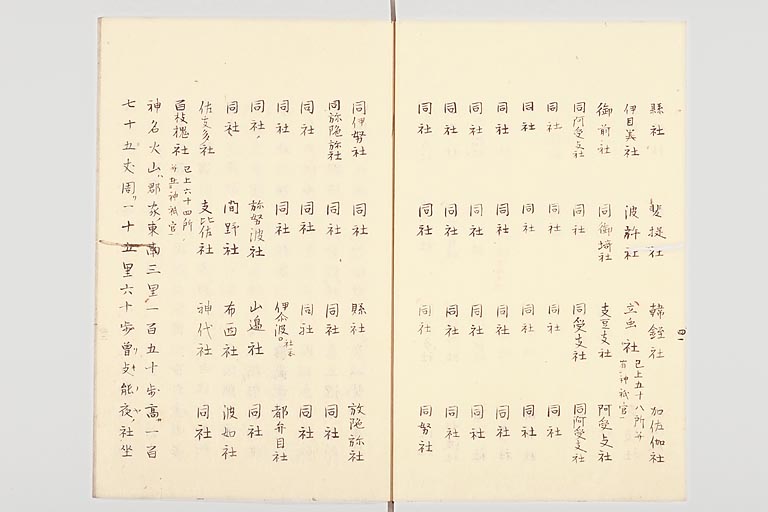 縣社 斐提社 韓銍社 加佐伽社
伊目美社 波祢社 立虫社 已上五十八所并在神祇官
御前社 同御埼社 支豆支社 阿受支社
同阿受支社 同社 同受支社 同阿受支社
同社 同社 同社 同社
同社 同社 同社 同社
同社 同社 同社 同社
同社 同社 同社 同社
同社 同社 同社 同社
同社 同社 同社 同努社
同伊努社 同社 縣社 放陁弥社
同弥陁弥社 同社 同社 同社
同社 同社 同社 同社
同社 同社 伊尒波社 都弁目社
同社 弥努波社 山邉社 同社
同社 間野社 布西社 波如社
佐支多社 支比佐社 神代社 同社
百枝槐社 已上六十四所並不在神祇官
神名火山郡家東南三里一百五十歩高一百
七十五丈周一十五里六十歩曽支能夜社坐